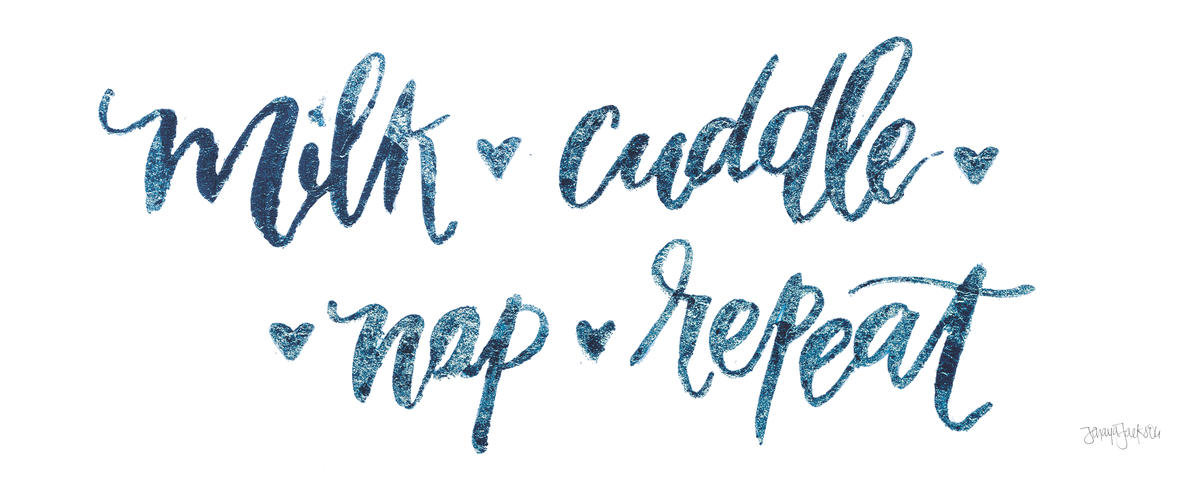 milk cuddle
nap repeat
Jenaya Jackson